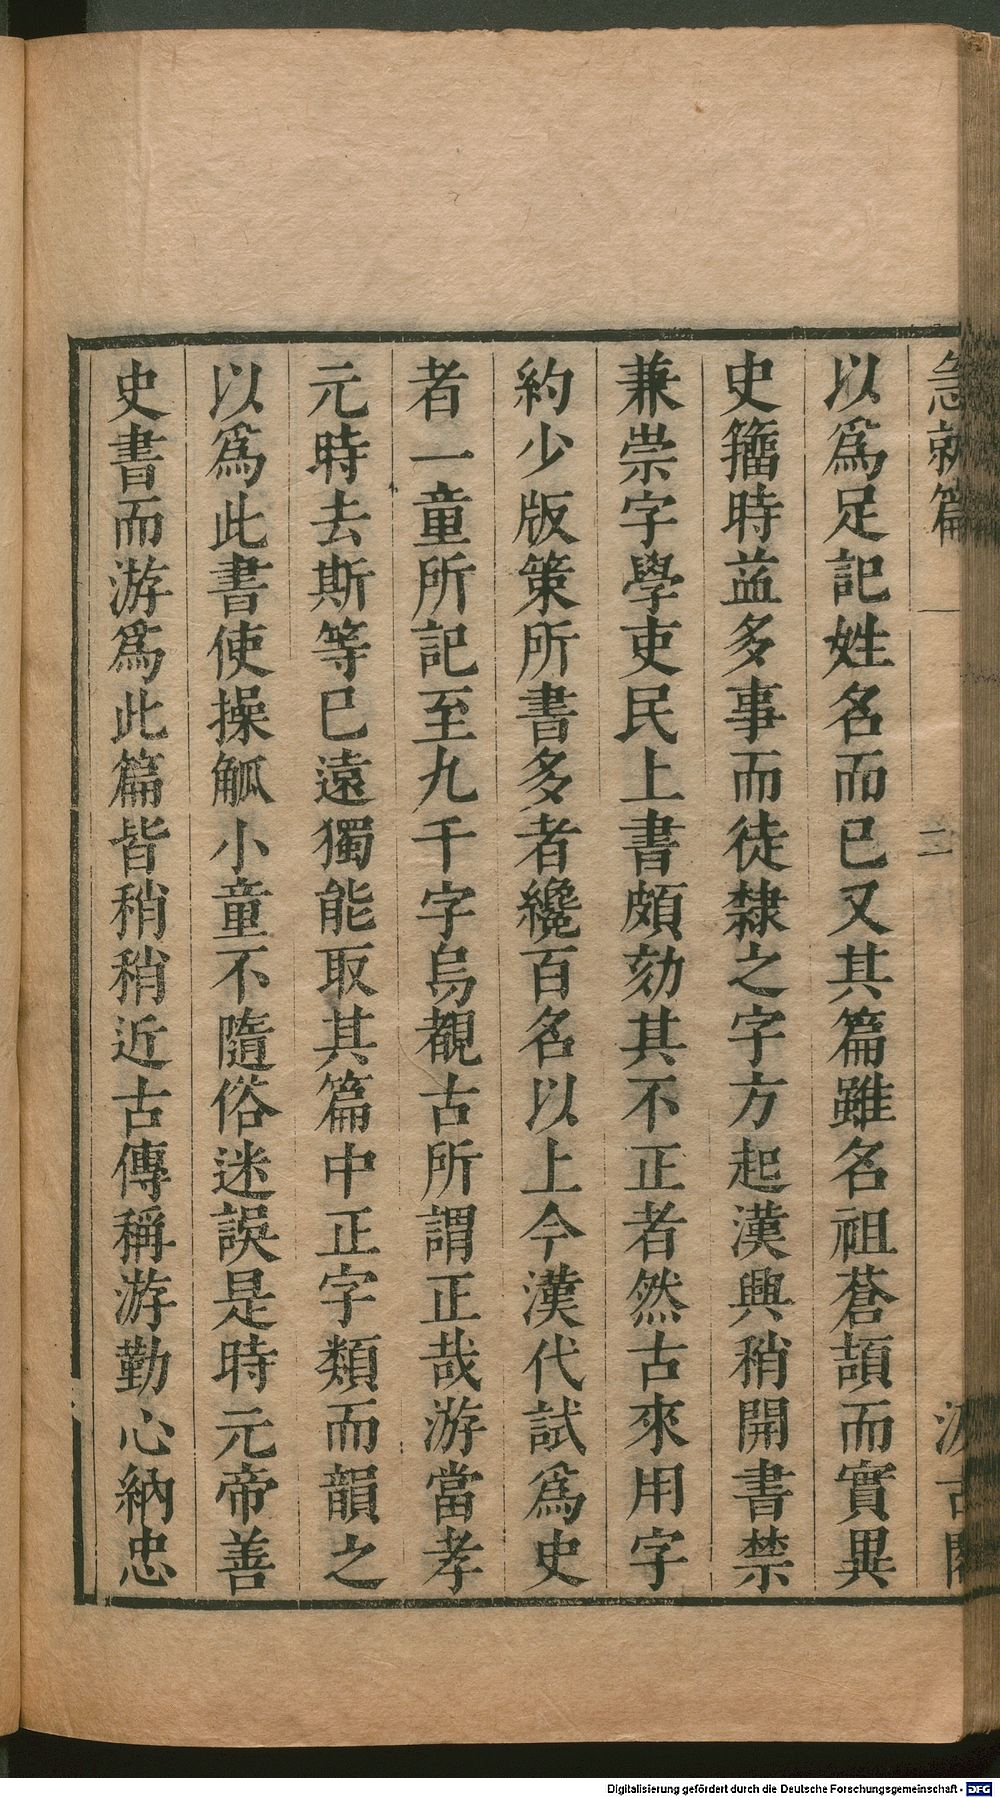 急就篇 一 二 汲古閣
以爲足記姓名而已又其篇雖名祖蒼頡而實異
史籒時益多事而徒隸之字方起漢興稍開書禁
兼崇字學吏民上書頗劾其不正者然古來用字
約少版策所書多者纔百名以上今漢代試爲史
者一童所記至九千字烏覩古所謂正哉游當孝
元時去斯等已遠獨能取其篇中正字類而韻之
以爲此書使操觚小童不隨俗迷誤是時元帝善
史書而游爲此篇皆稍稍近古傳稱游勤心納忠
Digitalisierung gefördert durch die Deutsche Forschungsgemeinschaft - DFG